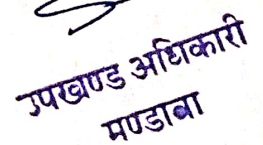 उपखण्ड अधिकारी
मण्डावा